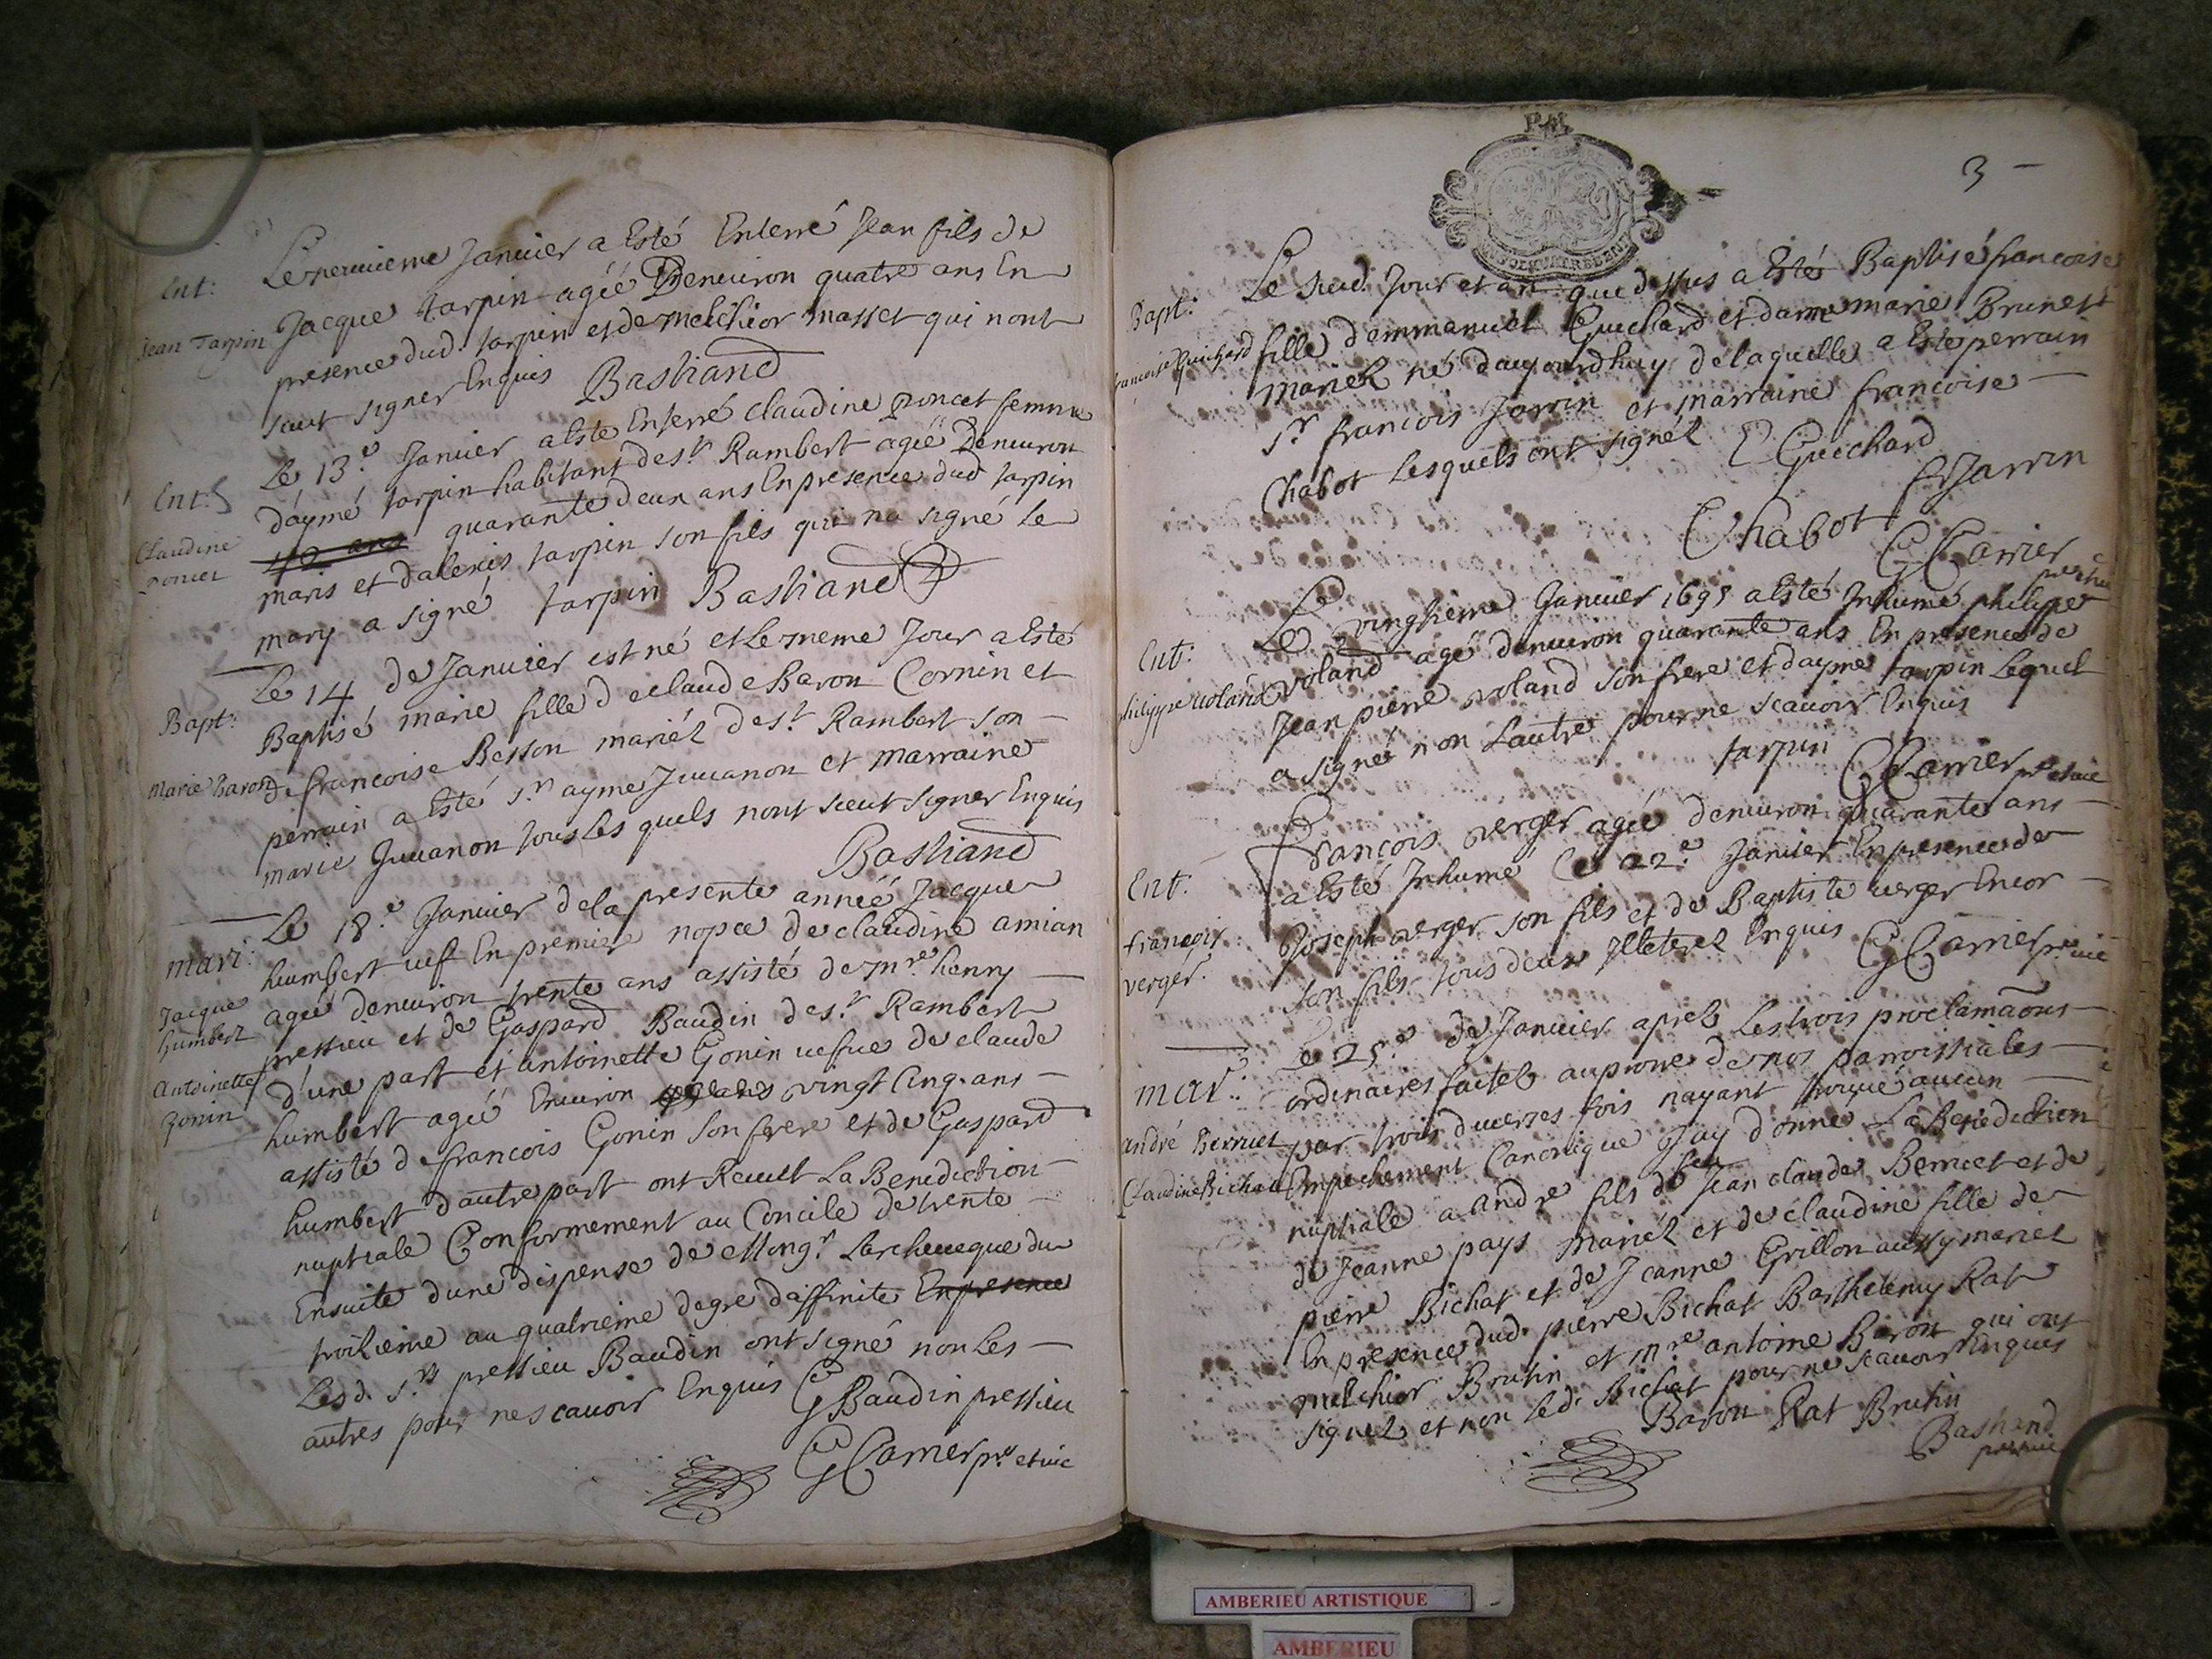 Ent:
Jean Tarpin
Le neuvieme Janvier a Esté Enterré Jean fils de
Jacque tarpin agéé Denviron quatre ans En
presence dud. tarpin et de melchior masset qui nont
sceut signer Enquis Bastiand
Ent:
Claudine
poncet
Le 13.e Janvier a Esté Enterré claudine poncet femme
d'aymé tarpin habitant de st Rambert agéé Denviron
42 ans quarante deux ans En presence dud tarpin
maris et d'alexis tarpin son fils qui na signé le
mary a signé tarpin Bastiand
Bapt:
Marie Baron
Le 14 de Janvier est né et Le meme Jour a Esté
Baptisé marie fille de claude Baron Cornin et
de francoise Besson mariéz de st. Rambert son
perrain a Esté sr ayme Juvanon et marraine
marie Juvanon tous Les quels nont sceut signer Enquis
Bastiand
mari:
Jacque
humbert
Antoinette
gonin
Le 18.e Janvier de la presente année Jacque
humbert uef En premiere nopce de claudine amian
agéé denviron trente ans assisté de mre henry
pressieu et de Gaspard Baudin de st. Rambert
d'une part et antoinette Gonin uefue de claude
humbert agéé Environ vingt Cinq ans
assisté de francois Gonin son frere et de Gaspard
humbert d'autre part ont Receult La Benediction
nuptiale Conformement au Concile de trente
Ensuite dune dispense de Mongr. Larcheveque du
troisieme au quatrieme degre d'affinite En presence
Lesd. srs pressieu Baudin ont signé non Les
autres pour ne scavoir Enquis G Baudin pressieu
G Carrier pre et vic
3
Bapt:
francoise Guichard
Le sud. Jour et an que dessus a Esté Baptisé francoise
fille d'emmanuel Guichard et dame marie Brunet
mariéz né d'aujourdhuy de laquelle a Esté perrain
sr francois Jarrin et marraine francoise
Chabot Lesquels ont signéz E Guichard
Chabot f Jarrin
G Carrier
pre et vic
Ent:
philippe voland
Le vingtieme Janvier 1695 a Esté Inhumé philippe
voland agé denviron quarante ans En presence de
Jean pierre voland son frere et d'ayme tarpin Lequel
a signé non Lautre pour ne scavoir Enquis
tarpin G Carrier pre et vic
Ent.
francois
verger.
Francois verger agéé denviron quarante ans
a Esté Inhumé Le 22.e Janvier En presence de
Joseph verger son fils et de Baptiste verger Encor
son fils tous deux Illeterez Enquis G Carrier pre vic
mar:
andré Bernuet
Claudine Bichat
Le 25.e de Janvier aprez Les trois proclamaons
ordinaires faitez au prone de nos parroissiales
par trois diverses fois nayant trouvé aucun
Empechement Canonique J'ay donné La Benediction
nuptiale a André fils de feu Jean claude Bernuet et de
de Jeanne pays mariéz et de claudine fille de
pierre Bichat et de Jeanne Grillon aussy mariez
En presence dud. pierre Bichat Barthelemy Rat
melchior Brutin et mre antoine Baron qui ont
signéz et non led. Bichat pour ne scavoir Enquis
Baron Rat Brutin
Bastiand
pre et vic
AMBERIEU ARTISTIQUE
AMBERIEU